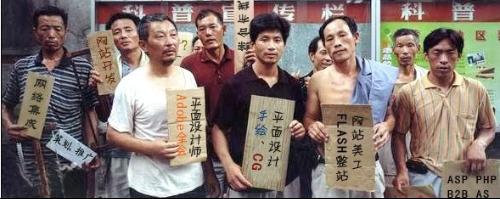 科普宣传栏
科普
网站开发
?
网络集成
策划.推广
平面设计师
Adobe认证
平面设计
手绘、CG
网站美工
FLASH整站
ASP PHP
B2B AS